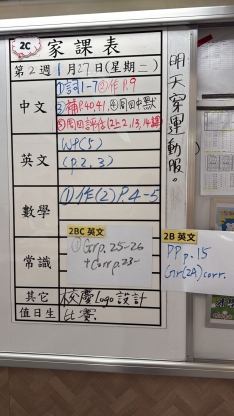 2C 家課表
第2週 1月27日(星期二)
中文
①詞1-7 ②作P.9
②補P.40,41,④周四中默
英文
WP(5)
(p.2,3)
數學
①作(2)P.4-5
常識
2BC 英文
①Gr p.25-26
+Corr p.23-
2B 英文
PP p.15
Gr(2A) corr.
其它
校慶Logo設計
值日生
比賽
明天穿運動服。